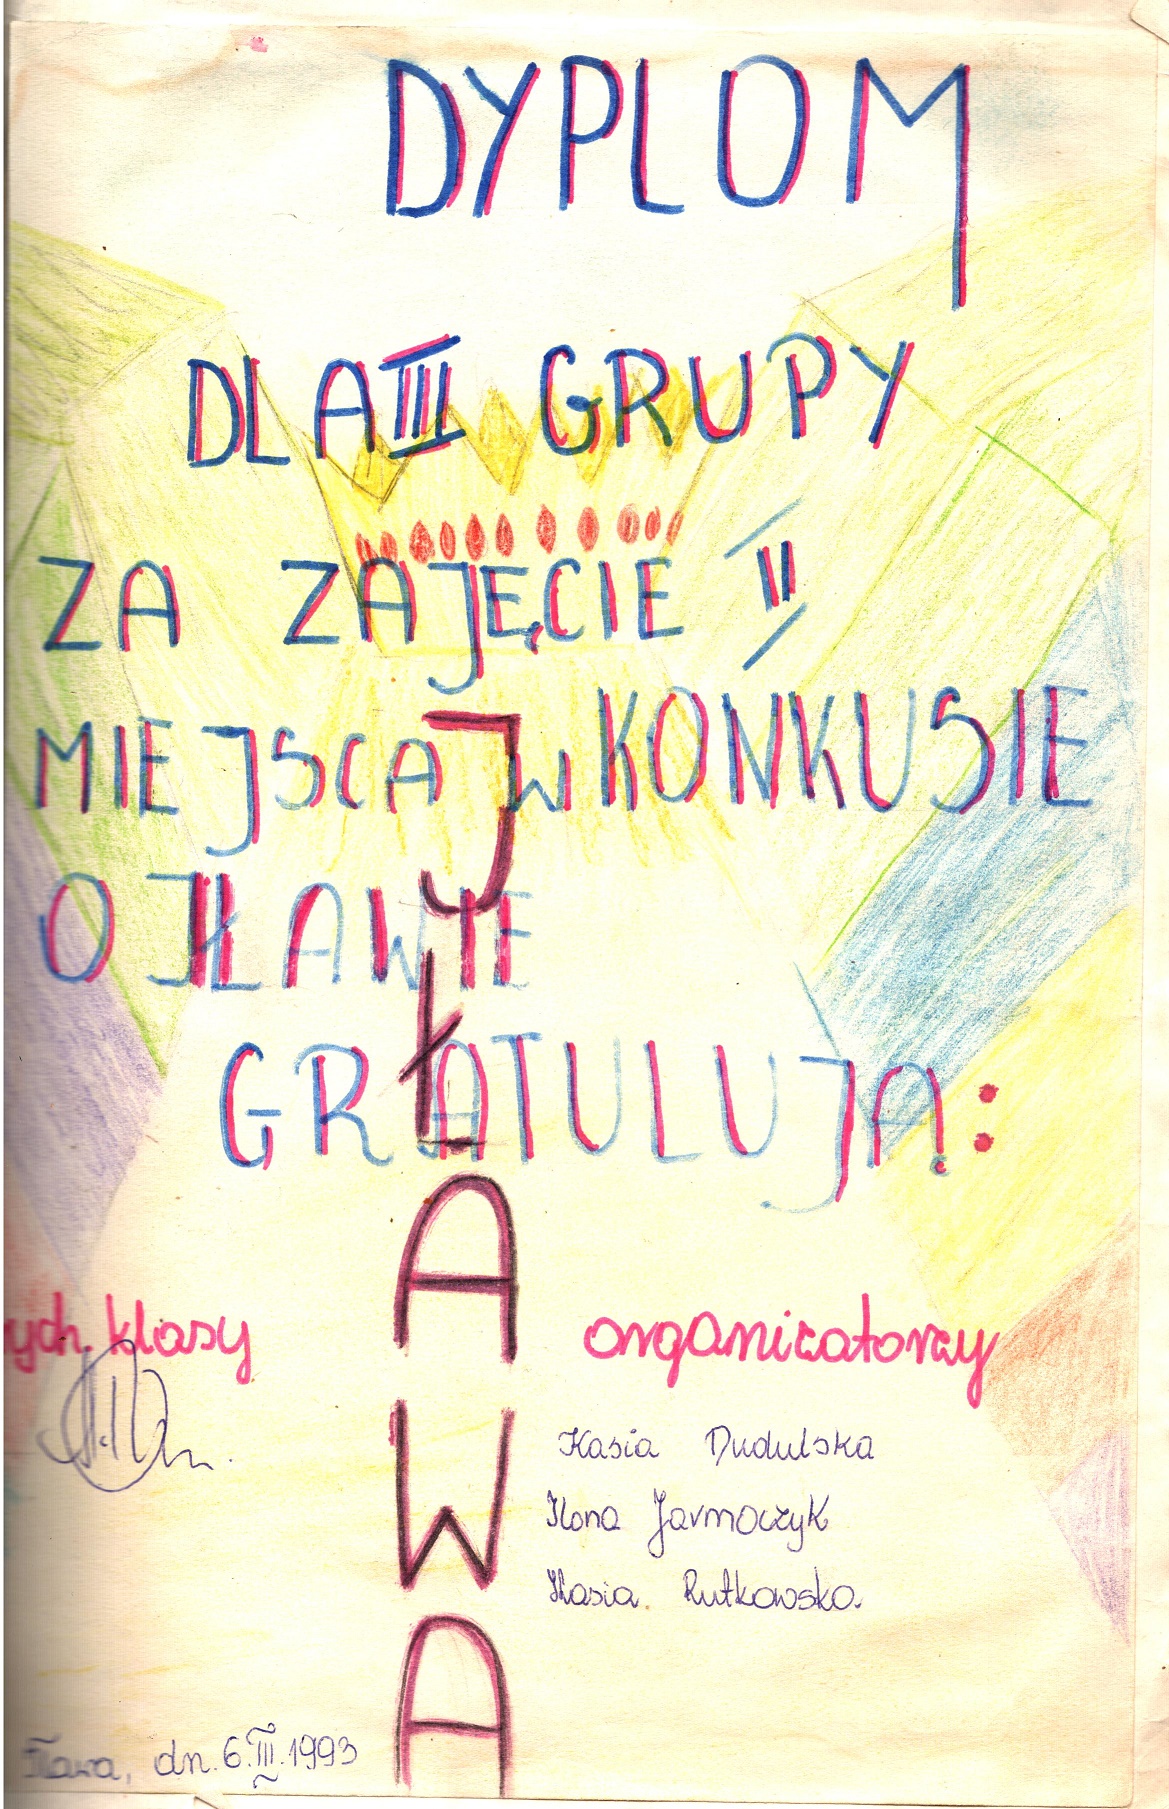 DYPLOM
DLA III GRUPY
ZA ZAJĘCIE II
MIEJSCA W KONKUSIE
O JŁAWIE
GRATULUJĄ:
JŁAWA
klasy
organizatorzy
Kasia Dudulska
Ilona Jarmoczyk
Kasia Rutkowska
Iława, dn. 6.III.1993